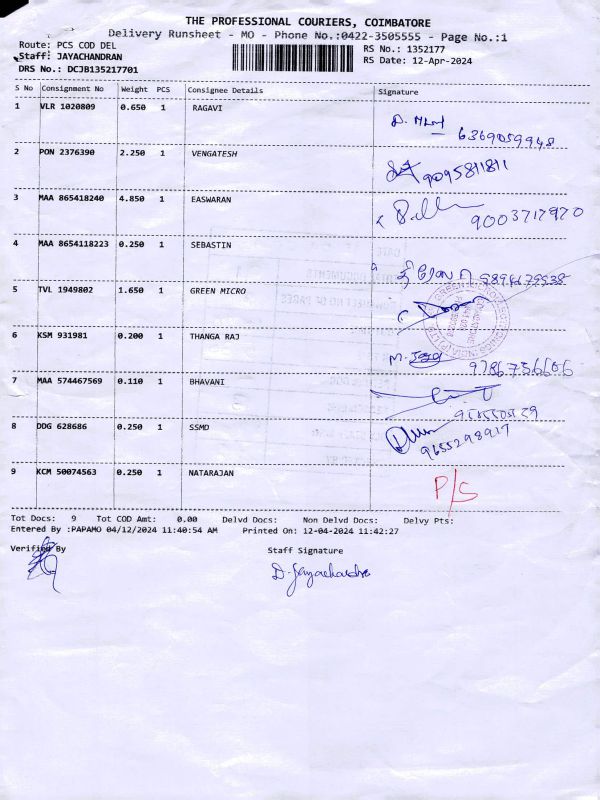 THE PROFESSIONAL COURIERS, COIMBATORE
Delivery Runsheet - MO - Phone No.:0422-3505555 - Page No.:1
Route: PCS COD DEL
RS No.: 1352177
Staff: JAYACHANDRAN
RS Date: 12-Apr-2024
DRS No.: DCJB135217701
S No Consignment No Weight PCS Consignee Details Signature
1 VLR 1020809 0.650 1 RAGAVI
6369059948
2 PON 2376390 2.250 1 VENGATESH
9095811811
3 MAA 865418240 4.850 1 EASWARAN
9003717970
4 MAA 8654118223 0.250 1 SEBASTIN
5 TVL 1949802 1.650 1 GREEN MICRO
6 KSM 931981 0.200 1 THANGA RAJ
9786756606
7 MAA 574467569 0.110 1 BHAVANI
8 DDG 628686 0.250 1 SSMD
9655298917
9 KCM 50074563 0.250 1 NATARAJAN
P/S
Tot Docs: 9 Tot COD Amt: 0.00 Delvd Docs: Non Delvd Docs: Delvy Pts:
Entered By :PAPAMO 04/12/2024 11:40:54 AM Printed On: 12-04-2024 11:42:27
Verified By Staff Signature
D. Jayachandra